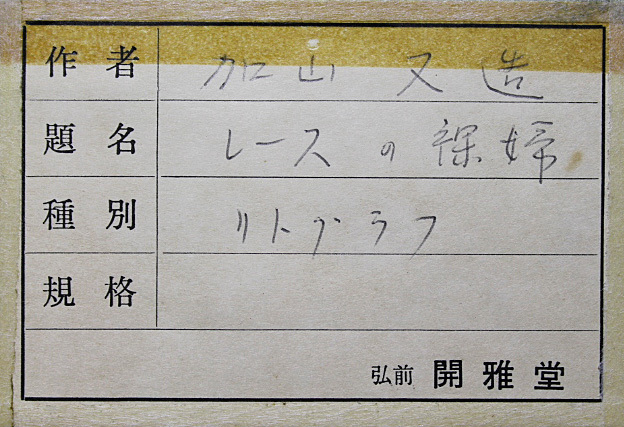 作者 加山又造
題名 レースの裸婦
種別 リトグラフ
規格
弘前 開雅堂